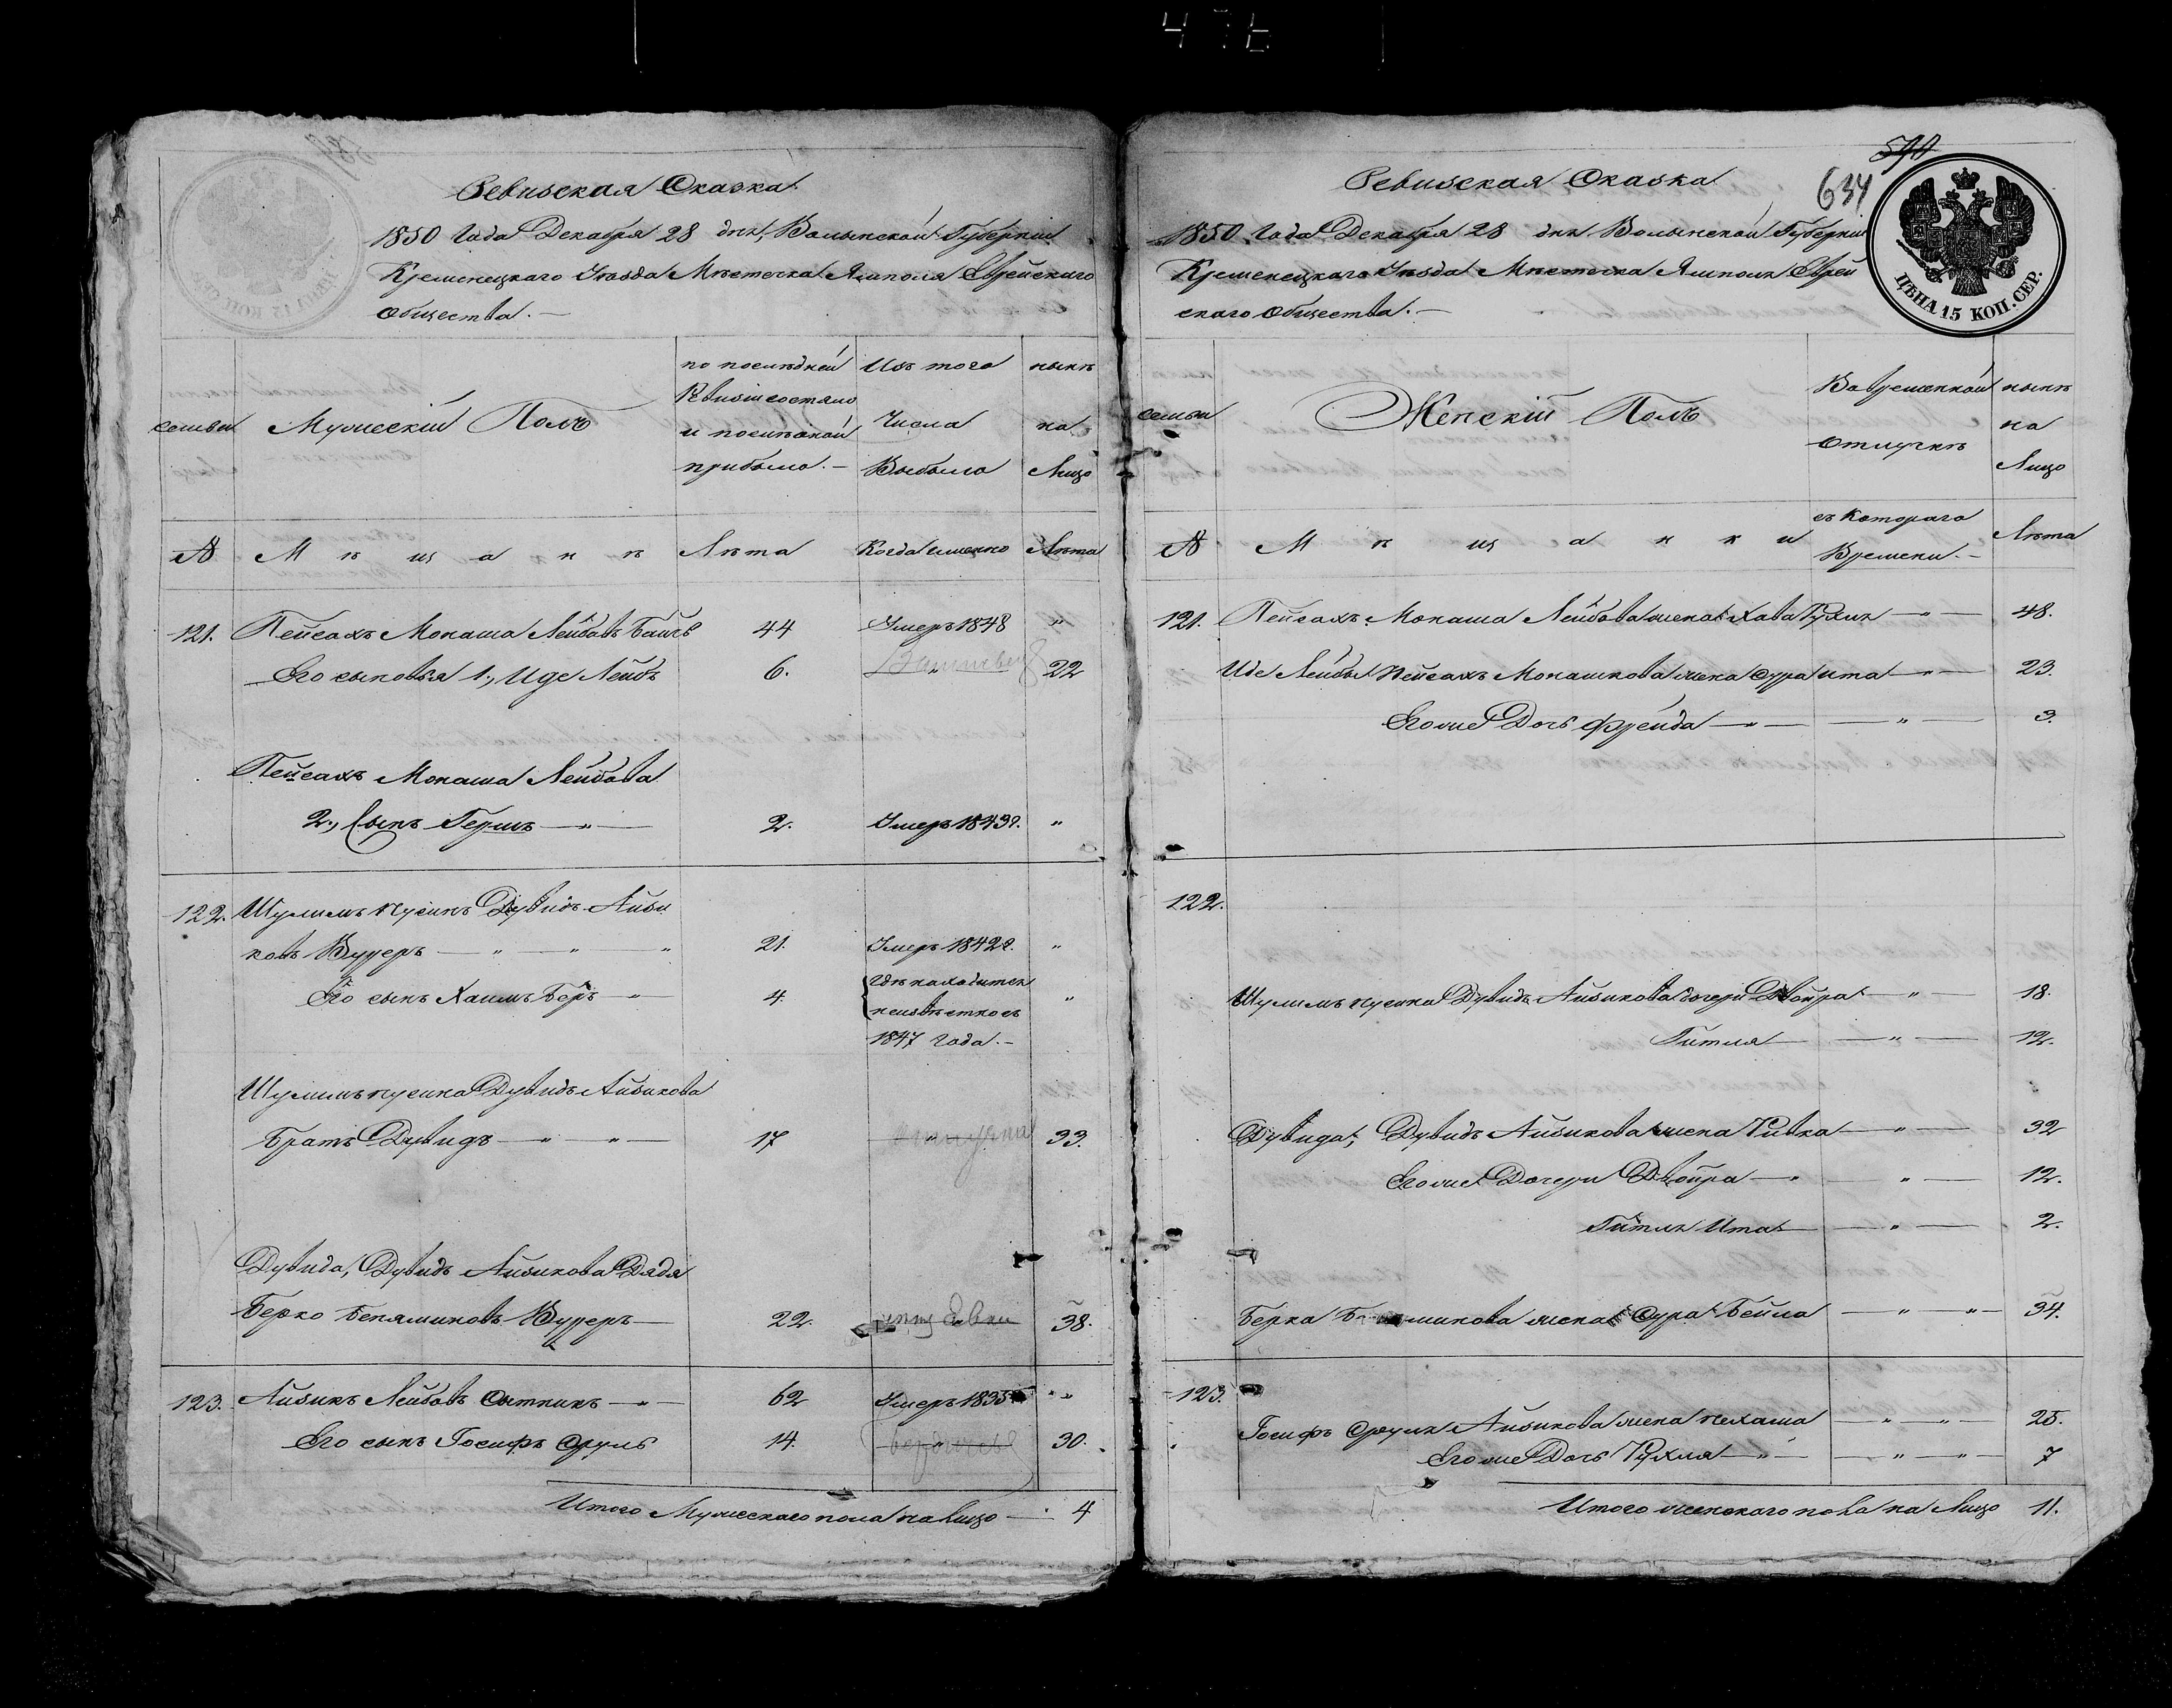 Ревизская Сказка
1850 Года Декабря 28 дня, Волынской Губернии
Кременецкаго Уѣзда Мѣстечка Ямполя Еврейскаго
Общества.—
семьи
Мужескій Полъ
по послѣдней
Ревизіи состояло
и послѣ оной
прибыло.—
Изъ того
Числа
Выбыло
нынѣ
на
Лицо
№
М ѣ щ а н ѣ
Лѣта
Когда именно
Лѣта
121. Пейсахъ Монаша Лейбовъ 44 Умеръ 1848 "
Его сыновья 1., Иде Лейбъ 6. " 22
Пейсахъ Монаша Лейбова
2., Сынъ Гершъ — " — 2. Умеръ 1843г. "
122. Шулимъ Нусинъ Дувидъ Айзи
ковъ Куцеръ — " — " — " 21. Умеръ 1842г. "
Его сынъ Хаимъ Беръ — " 4. гдѣ находится
неизвѣстно съ "
1847 Года.—
Шулимъ Нусина Дувидъ Айзикова
Братъ Дувидъ — " — " — 17 33.
Дувида, Дувидъ Айзикова Дядя
Берко Беняминовъ Куцеръ — 22. 38.
123. Айзикъ Лейбовъ Сытникъ — " — 62 Умеръ 1835 " "
Его сынъ Іосифъ Сруль 14. 30.
Итого Мужескаго пола на лицо — 4
590
634
ЦѢНА 15 КОП. СЕР.
Ревизская Сказка
1850 Года Декабря 28 дня Волынской Губерніи
Кременецкаго Уѣзда Мѣстечка Ямполя Еврей
скаго Общества.—
семьи
Женскій Полъ
Во временной
отлучкѣ
нынѣ
на
Лицо
№
М ѣ щ а н к и
съ котораго
Времени.—
Лѣта
121. Пейсахъ Монаша Лейбова жена Хава Рухля — " — 48.
Иде Лейбы Пейсахъ Монашкова жена Сура Ита — " — 23.
Его же Дочь Фрейда — " — — " — 3.
122.
Шулимъ Нусина Дувидъ Айзикова дочери Двойра — " — 18.
Гитля — — " — 12.
Дувида, Дувидъ Айзикова жена Ривка — " — 32
Его же Дочери Двойра — " — " — 12.
Гитля Ита — — " — 2.
Берка жена Сура Бейла — " — " — 34.
123.
Іосифъ Сруля Айзикова жена Нехама — " — " — 25.
Его же Дочь Рухля — " — — " — " — 7
Итого женскаго пола на Лицо 11.